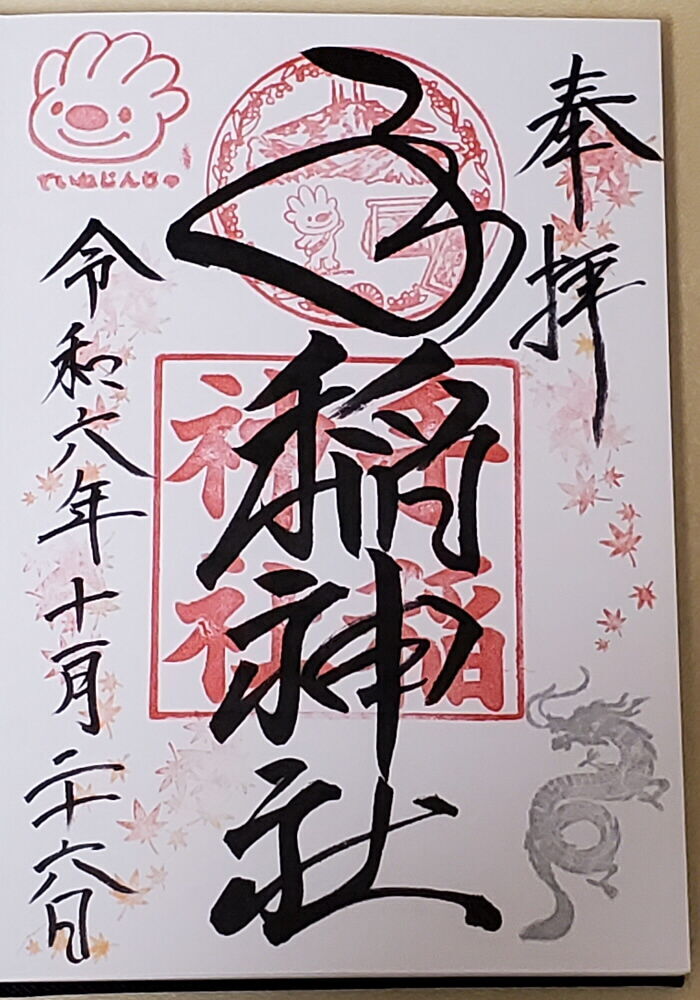 奉拝
手稲神社
手稲神社
令和六年十一月二十六日
ていねじんじゃ